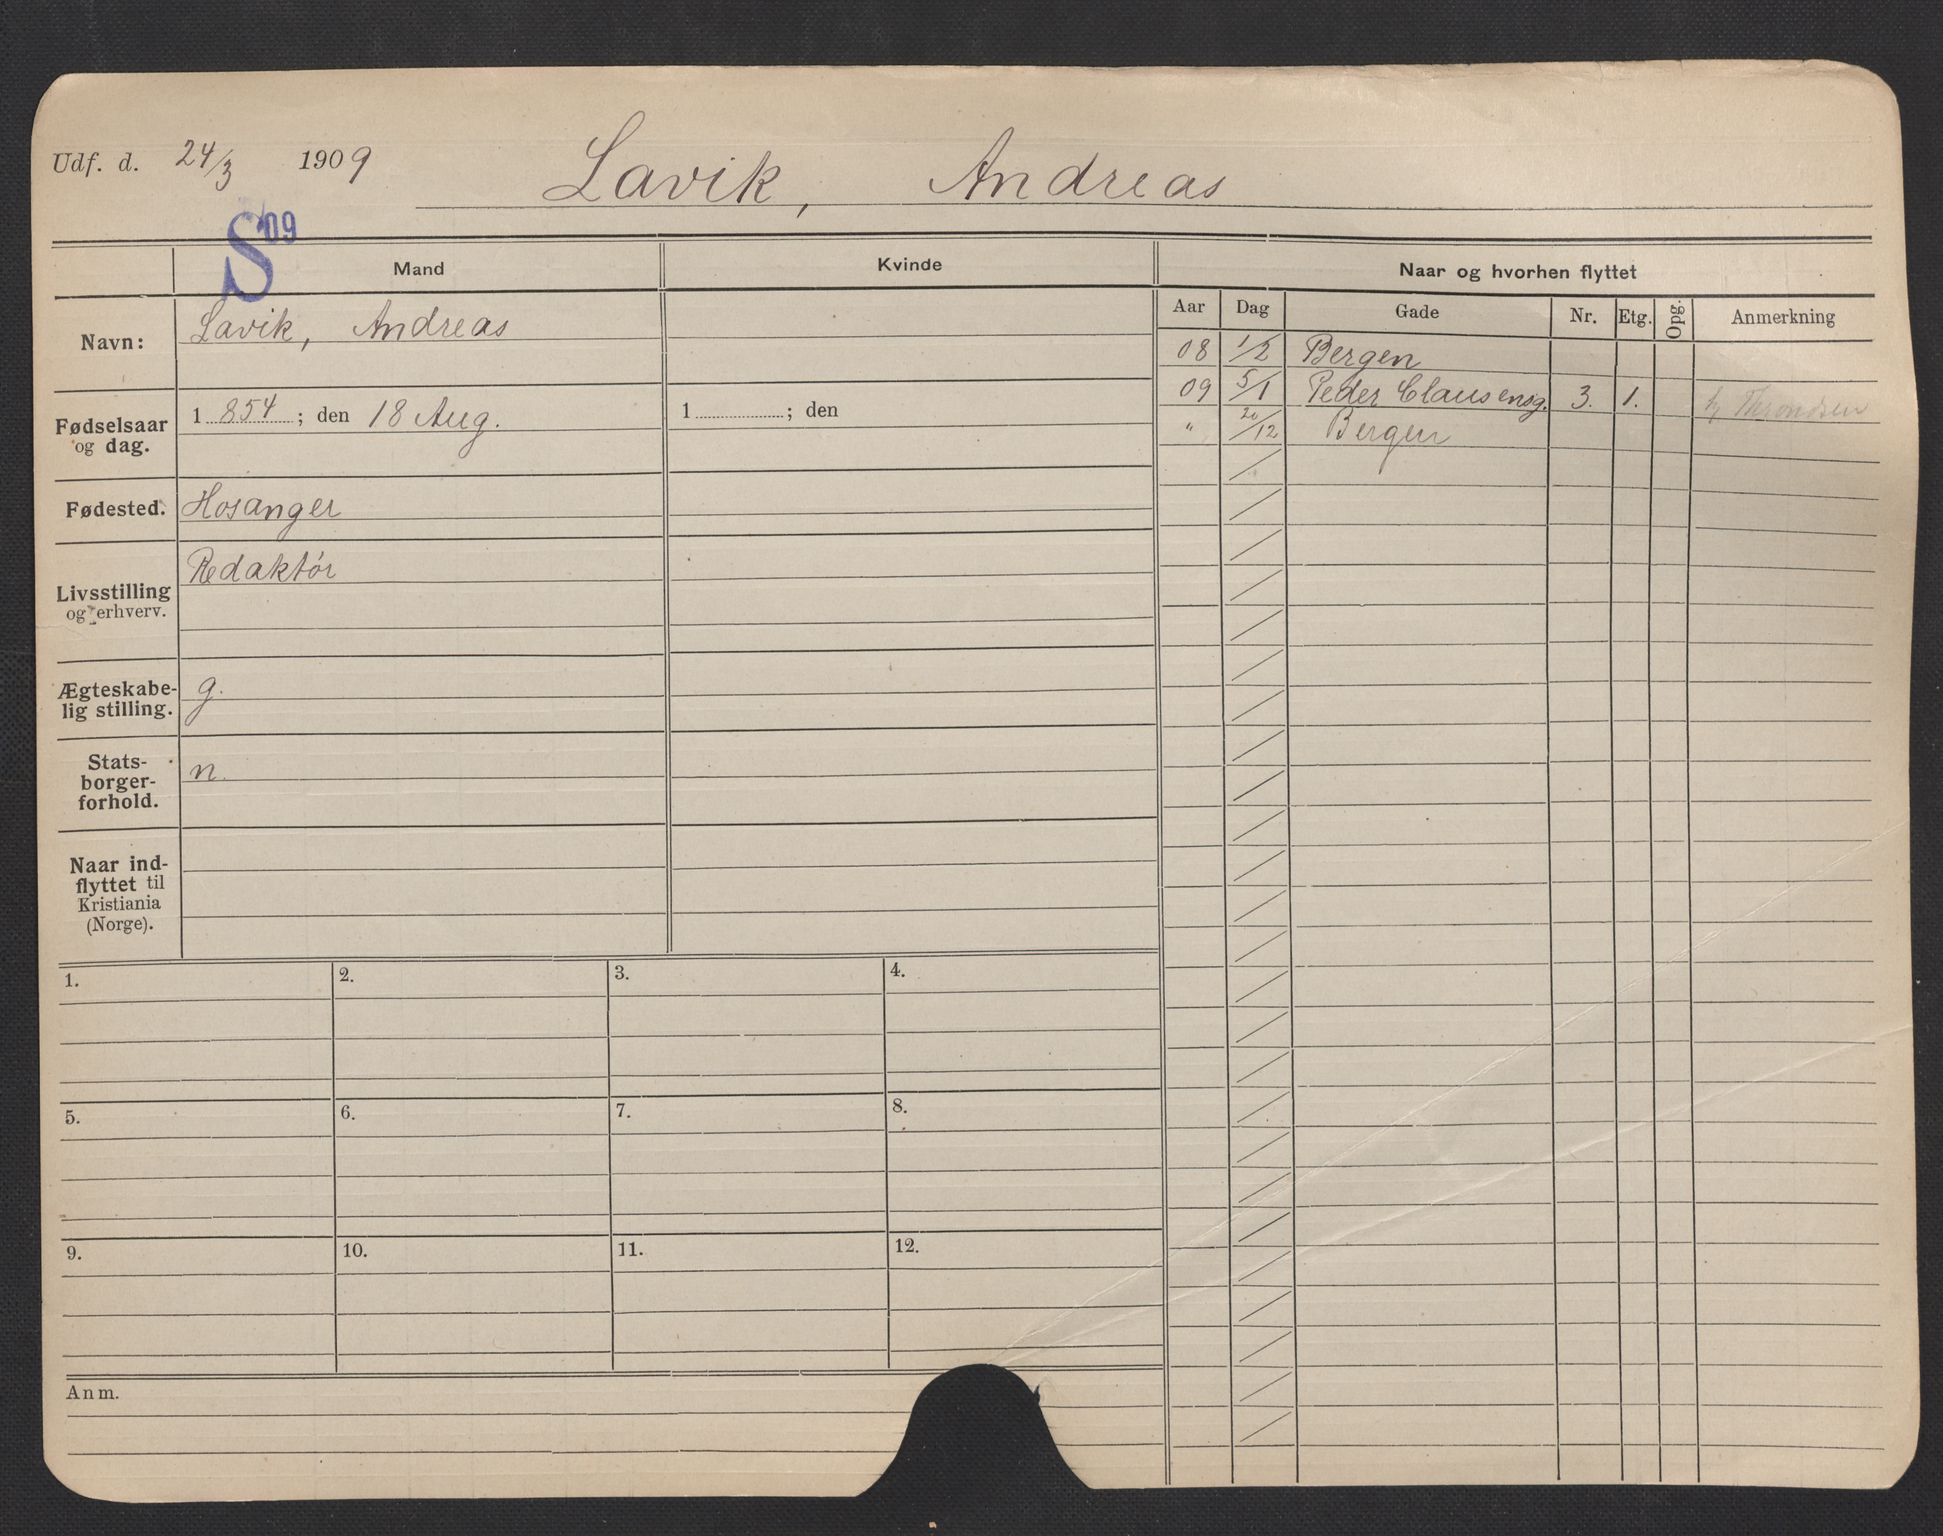 Udf. d. 24/3 1909
Lavik, Andreas
S 09
Mand
Kvinde
Naar og hvorhen flyttet
Navn:
Lavik, Andreas
Fødselsaar og dag.
1854; den 18 Aug.
1 ; den
Fødested.
Hosanger
Livsstilling og erhverv.
Redaktør
Ægteskabe-
lig stilling.
g.
Stats-
borger-
forhold.
n.
Naar ind-
flyttet til
Kristiania
(Norge).
Aar Dag Gade Nr. Etg. Opg. Anmerkning
08 1/2 Bergen
09 5/1 Peder Clausensg. 3. 1. Throndsen
" 20/12 Bergen
1. 2. 3. 4.
5. 6. 7. 8.
9. 10. 11. 12.
Anm.